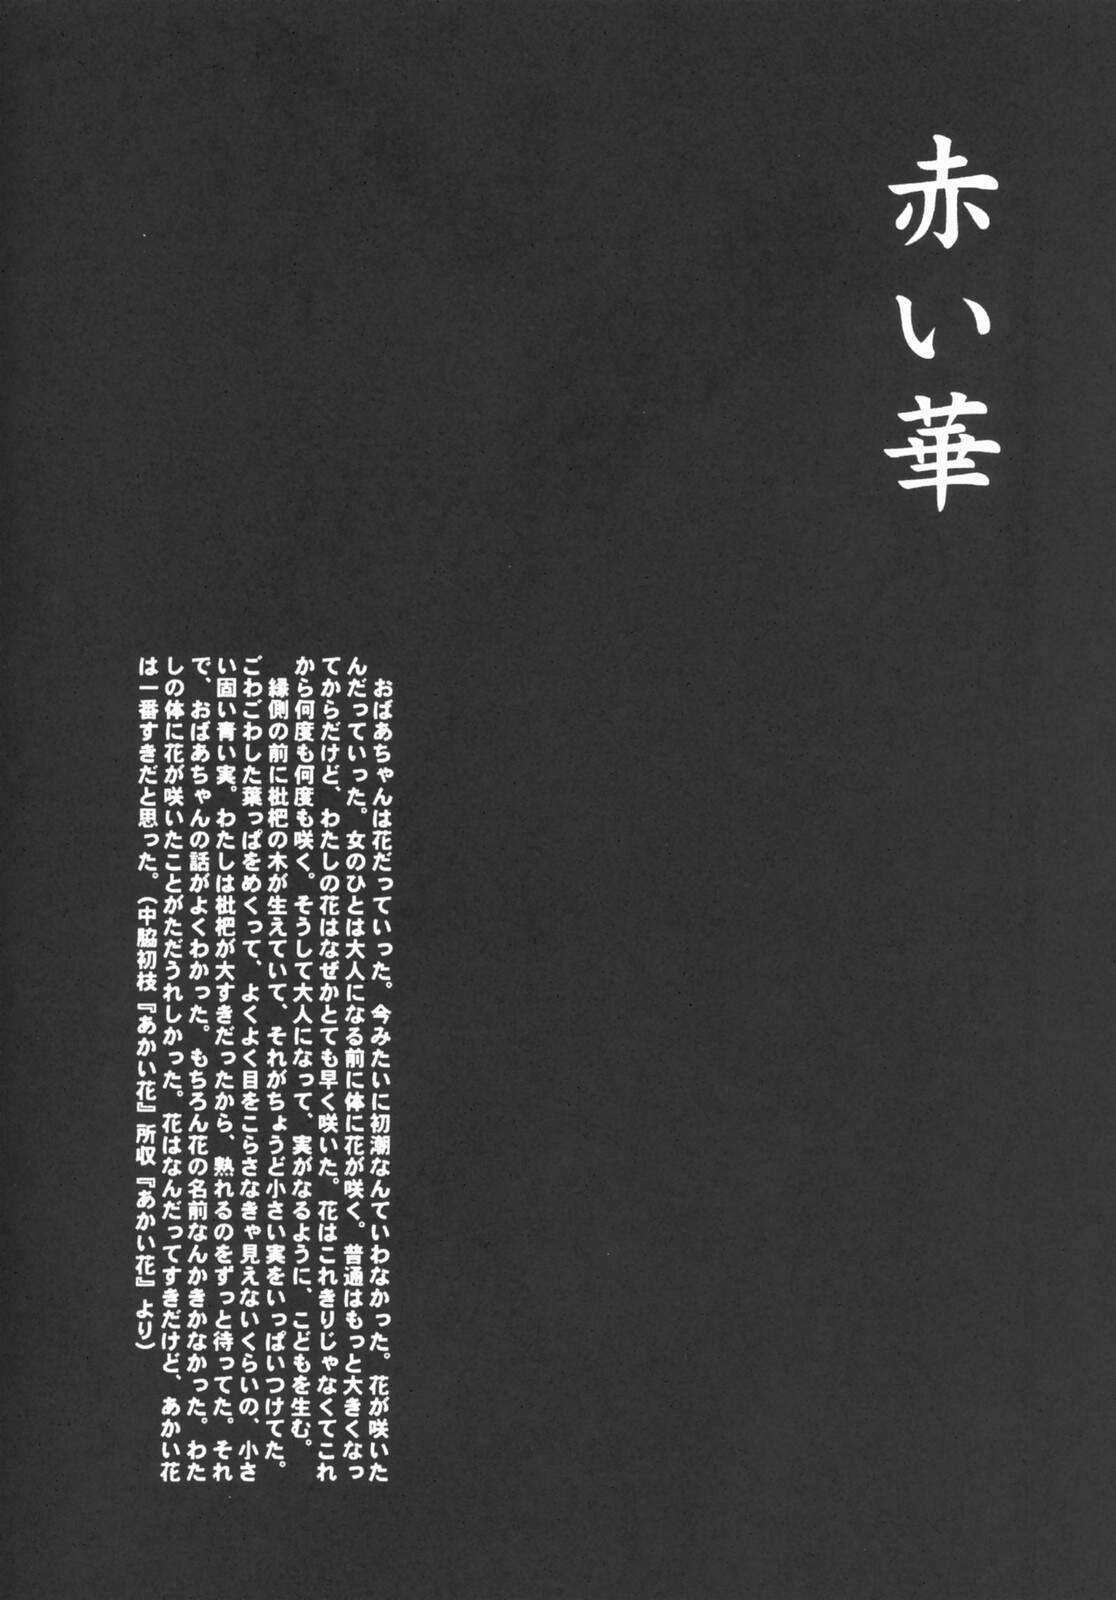 赤い華
おばあちゃんは花だっていった。今みたいに初潮なんていわなかった。花が咲いた
んだっていった。女のひとは大人になる前に体に花が咲く。普通はもっと大きくなっ
てからだけど、わたしの花はなぜかとても早く咲いた。花はこれきりじゃなくてこれ
から何度も何度も咲く。そうして大人になって、実がなるように、こどもを生む。
縁側の前に枇杷の木が生えていて、それがちょうど小さい実をいっぱいつけてた。
ごわごわした葉っぱをめくって、よくよく目をこらさなきゃ見えないくらいの、小さ
い固い青い実。わたしは枇杷が大すきだったから、熟れるのをずっと待ってた。それ
で、おばあちゃんの話がよくわかった。もちろん花の名前なんかきかなかった。わた
しの体に花が咲いたことがただうれしかった。花はなんだってすきだけど、あかい花
は一番すきだと思った。（中脇初枝『あかい花』所収『あかい花』より）